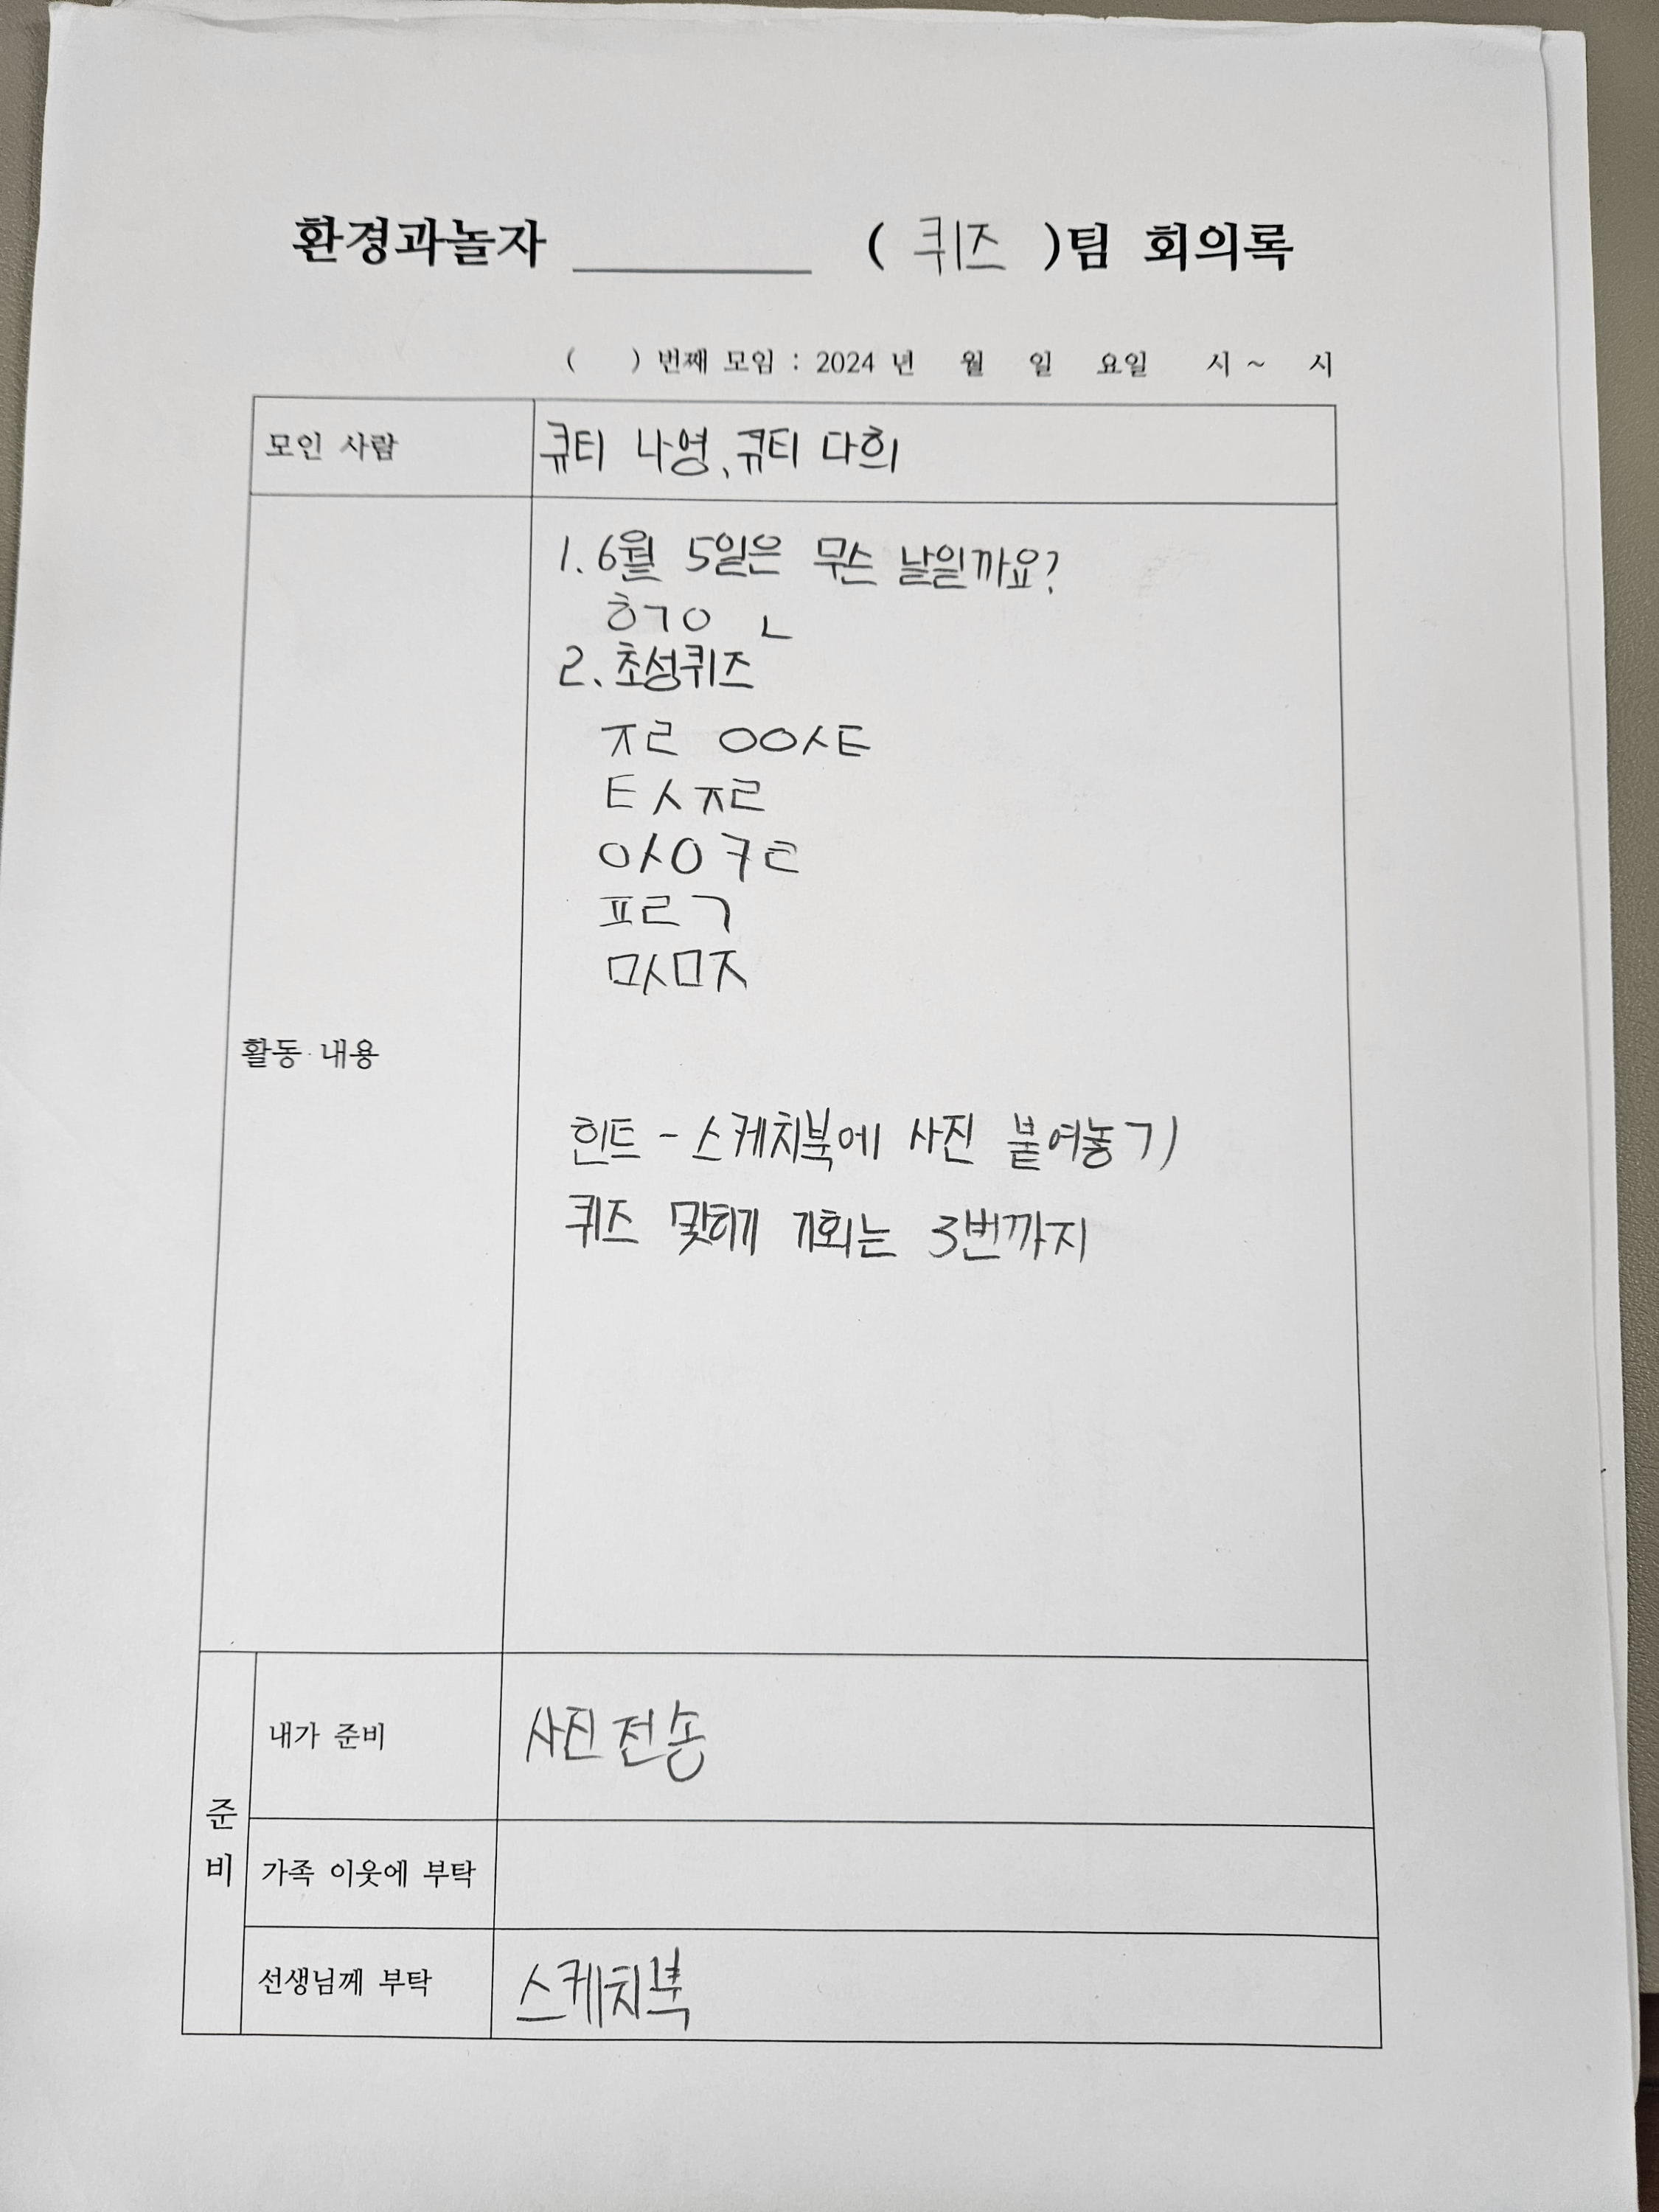 환경과놀자 ________ ( 퀴즈 )팀 회의록
( ) 번째 모임 : 2024 년 월 일 요일 시 ~ 시
모인 사람 큐티 나영, 큐티 다희
1. 6월 5일은 무슨 날일까요?
ㅎㄱㅇ ㄴ
2. 초성퀴즈
ㅈㄹ ㅇㅇㅅㅌ
ㅌㅅㅈㄹ
ㅇㅅㅇㅋㄹ
ㅍㄹㄱ
ㅁㅅㅁㅈ
활동 내용
힌트 - 스케치북에 사진 붙여놓기
퀴즈 맞히기 기회는 3번까지
준비
내가 준비 사진 전송
가족 이웃에 부탁
선생님께 부탁 스케치북